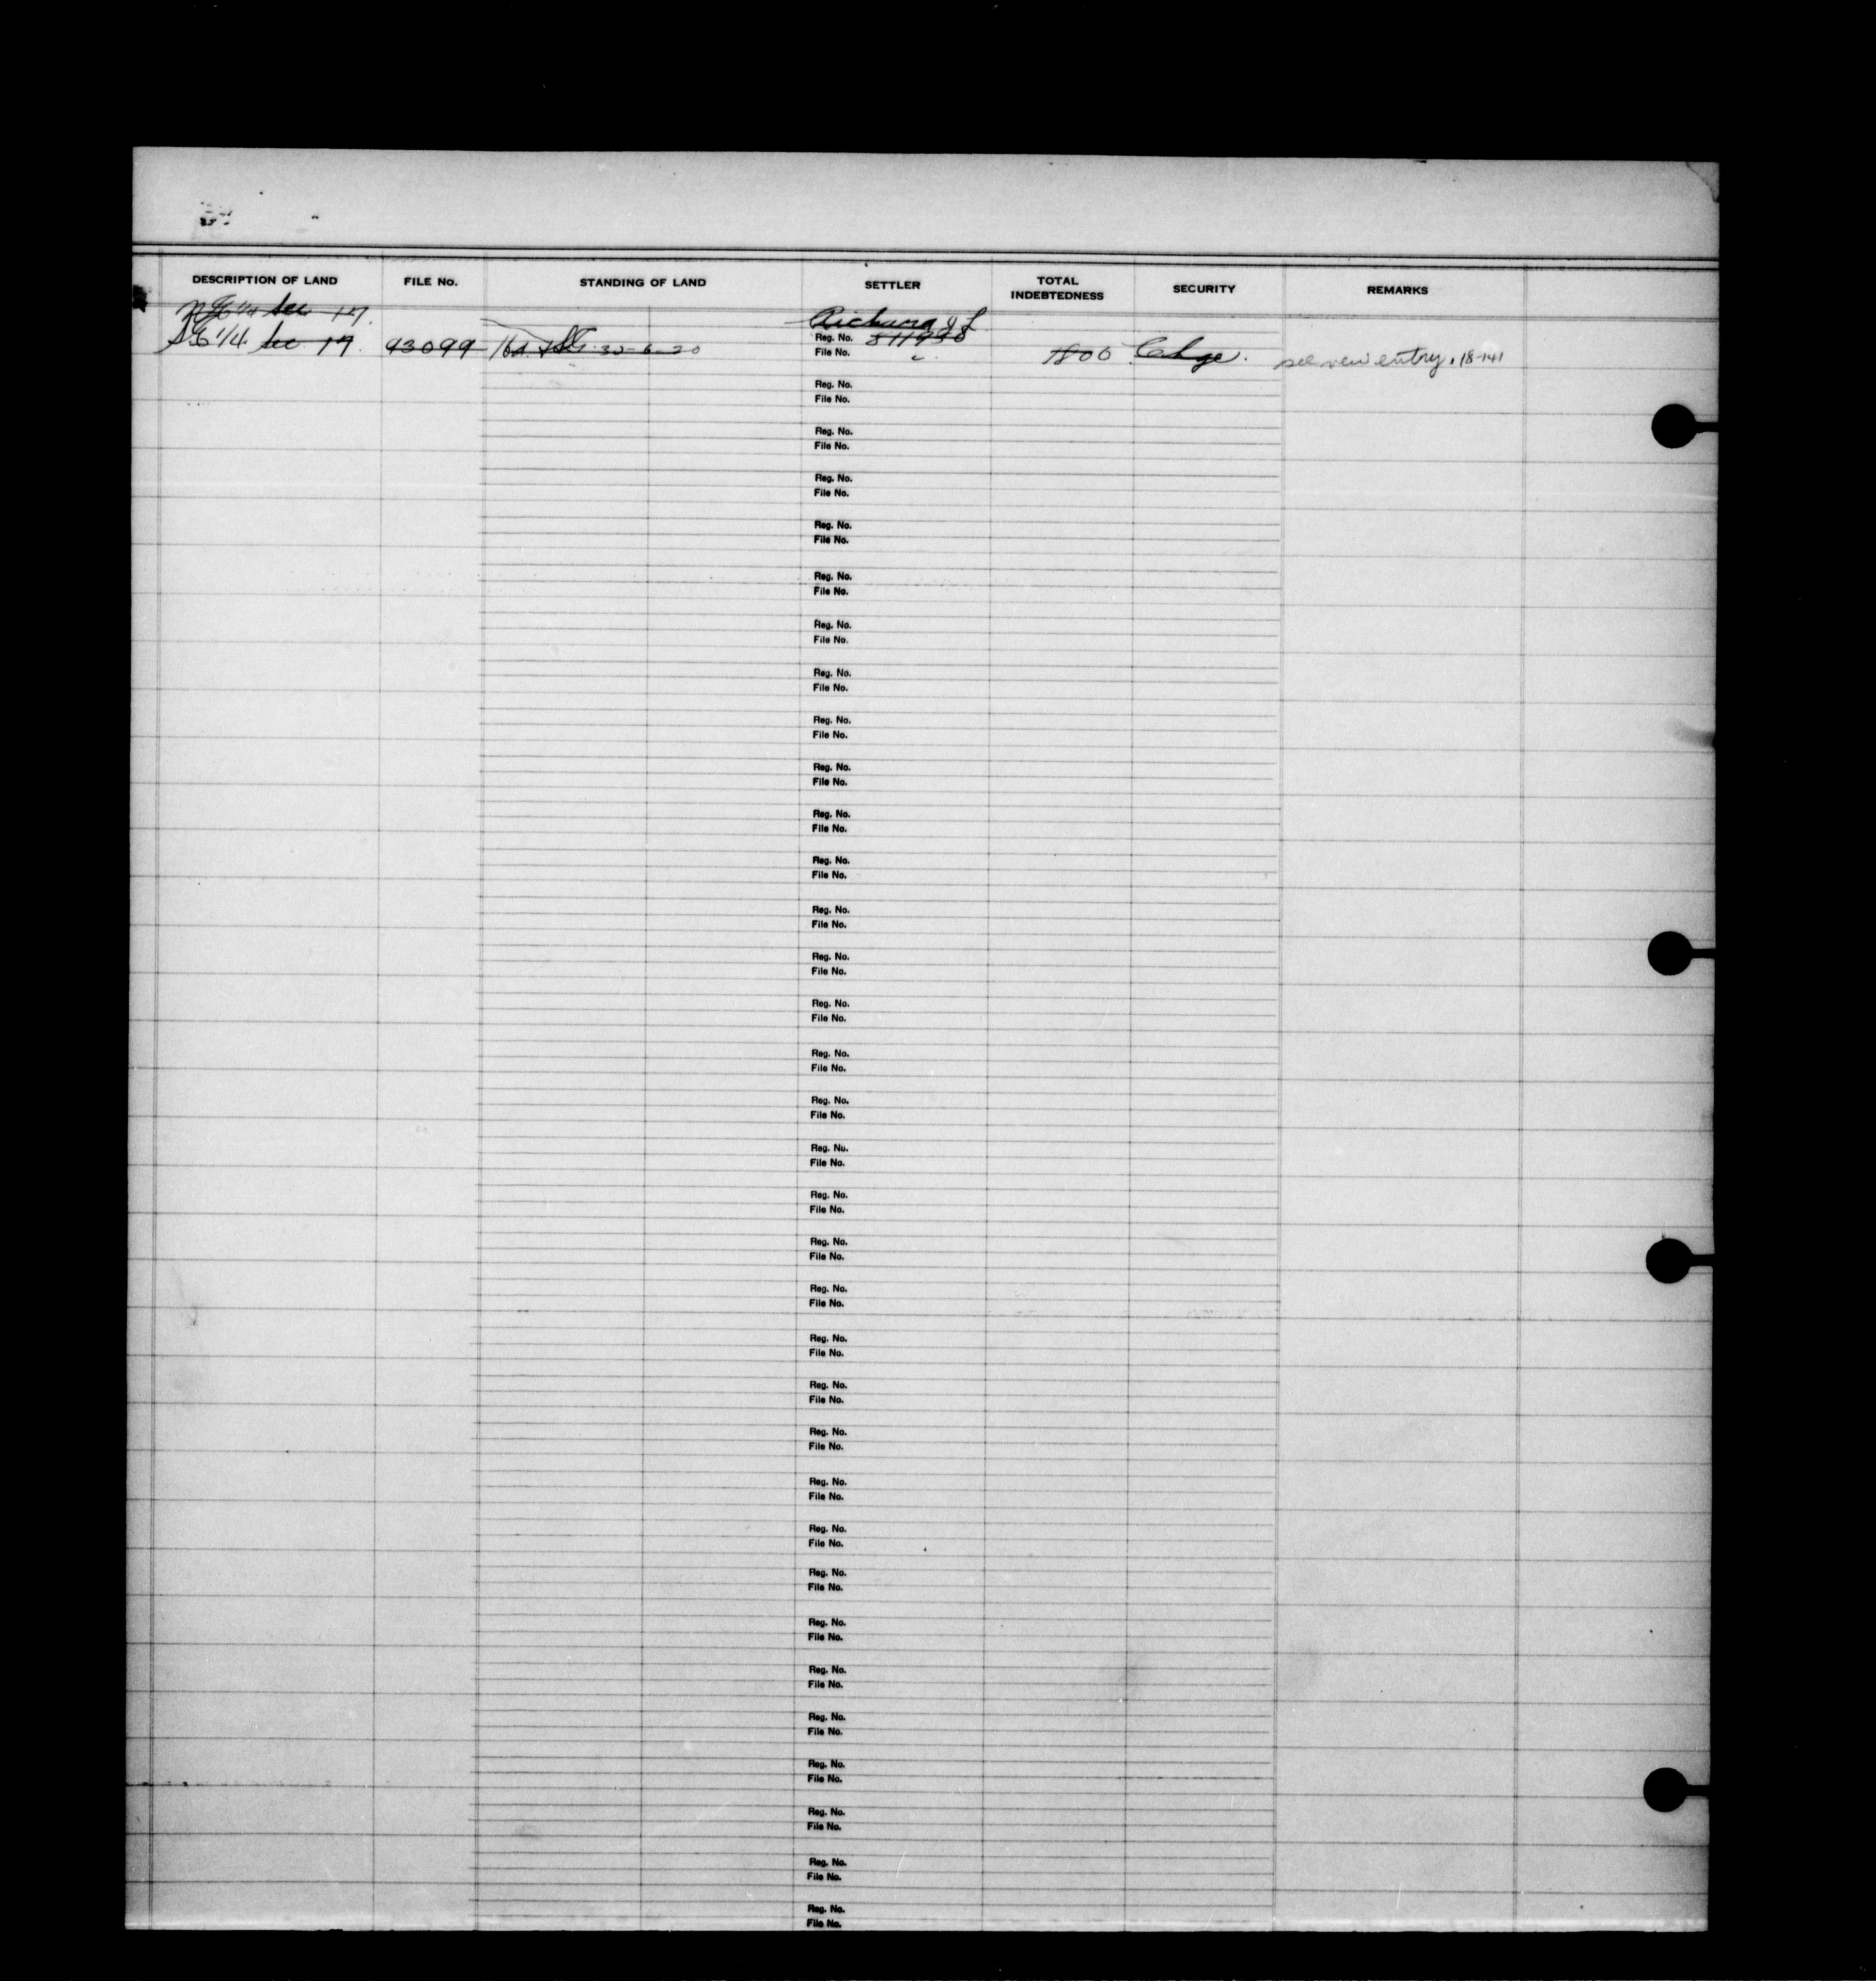 DESCRIPTION OF LAND FILE NO. STANDING OF LAND SETTLER TOTAL INDEBTEDNESS SECURITY REMARKS
sec 17
1/4 sec 17 93099 30-6-20 Reg. No. 811998 1800 Chge. see new entry. 18-141
File No.
Reg. No.
File No.
Reg. No.
File No.
Reg. No.
File No.
Reg. No.
File No.
Reg. No.
File No.
Reg. No.
File No.
Reg. No.
File No.
Reg. No.
File No.
Reg. No.
File No.
Reg. No.
File No.
Reg. No.
File No.
Reg. No.
File No.
Reg. No.
File No.
Reg. No.
File No.
Reg. No.
File No.
Reg. No.
File No.
Reg. Nu.
File No.
Reg. No.
File No.
Reg. No.
File No.
Reg. No.
File No.
Reg. No.
File No.
Reg. No.
File No.
Reg. No.
File No.
Reg. No.
File No.
Reg. No.
File No.
Reg. No.
File No.
Reg. No.
File No.
Reg. No.
File No.
Reg. No.
File No.
Reg. No.
File No.
Reg. No.
File No.
Reg. No.
File No.
Reg. No.
File No.